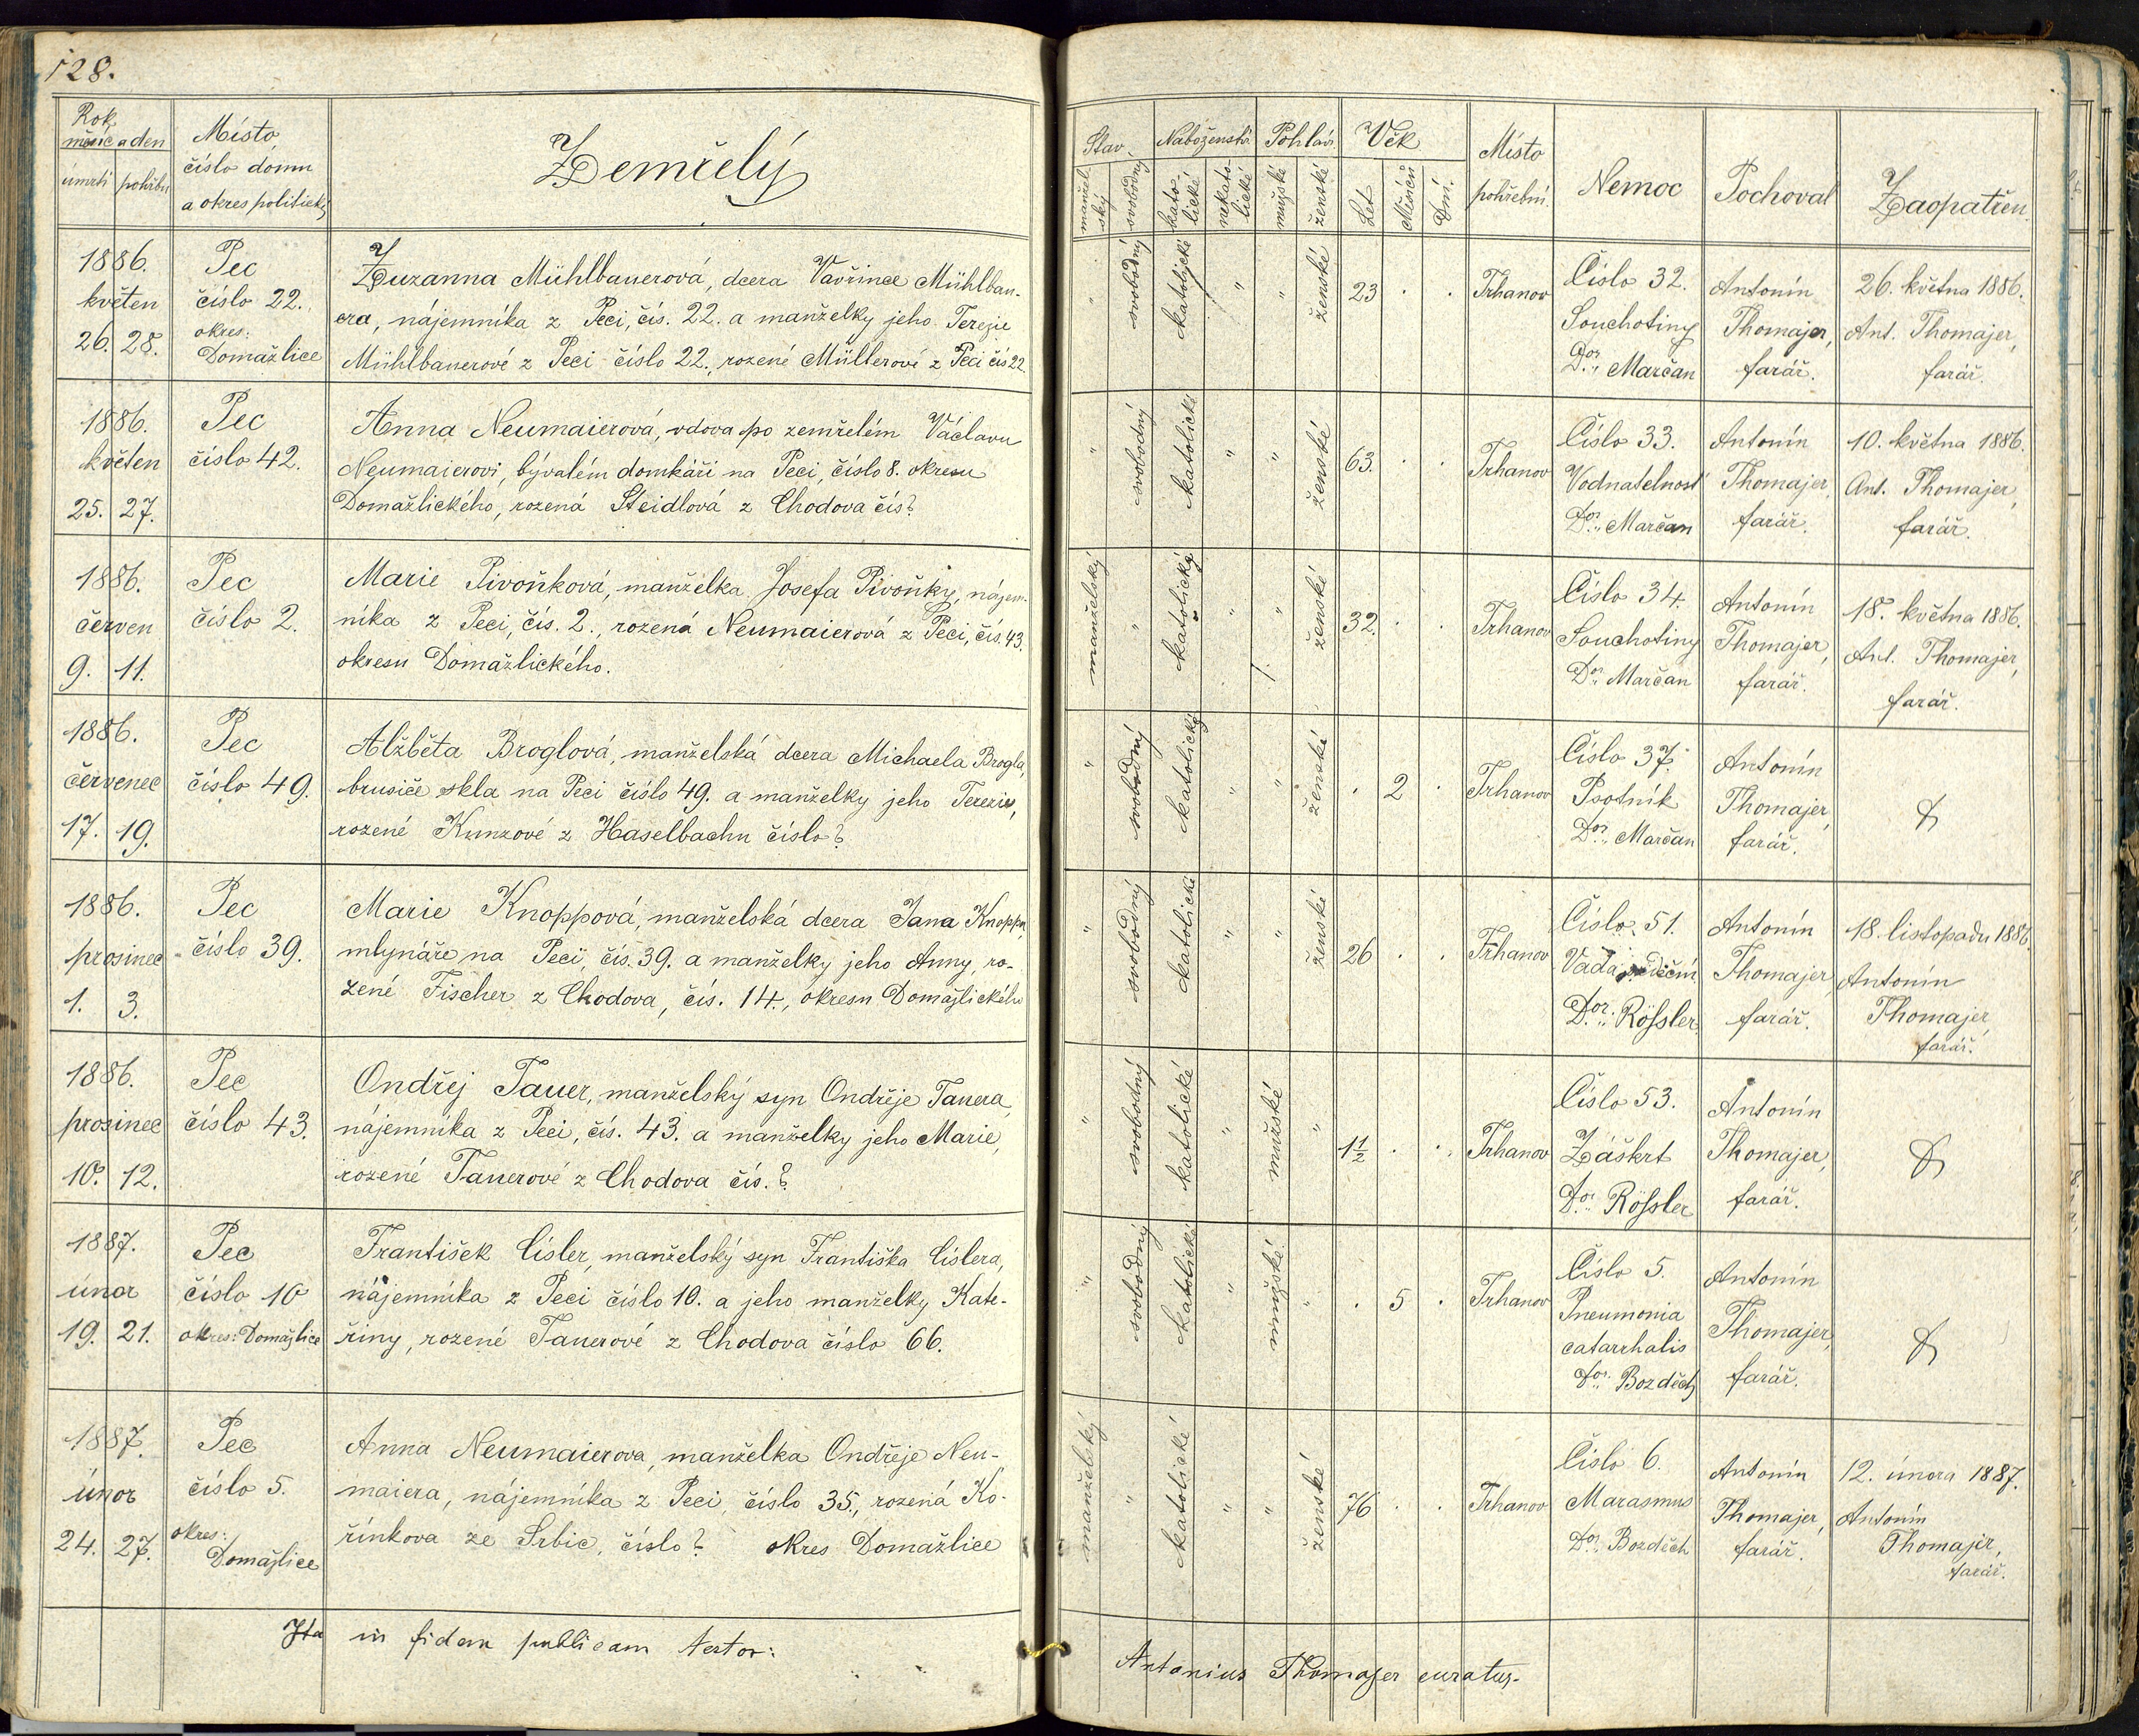 128.
Rok, měsíc a den
úmrtí pohřbu
Místo,
číslo domu
a okres politický
Zemřelý
Stav
manželský
svobodný
Náboženství
katolické
nekatolické
Pohlaví
mužské
ženské
Věk
Let
Měsíců
Dní.
Místo
pohřební.
Nemoc
Pochoval
Zaopatřen.
1886.
květen
26. 28.
Pec
číslo 22.
okres:
Domažlice
Zuzanna Mühlbauerová, dcera Vavřince Mühlbau-
era, nájemníka z Peci, čís. 22. a manželky jeho Terezie
Mühlbauerové z Peci číslo 22., rozené Müllerové z Peci čís 22.
" svobodný katolické " " ženské 23 . . Trhanov
Číslo 32.
Souchotiny
Dor. Marčan
Antonín
Thomajer,
farář.
26. května 1886.
Ant. Thomajer,
farář.
1886.
květen
25. 27.
Pec
číslo 42.
Anna Neumaierová, vdova po zemřelém Václavu
Neumaierovi, bývalém domkáři na Peci, číslo 8. okresu
Domažlického, rozená Steidlová z Chodova čís?
" svobodný katolické " " ženské 63. . . Trhanov
Číslo 33.
Vodnatelnost
Dor. Marčan
Antonín
Thomajer,
farář.
10. května 1886.
Ant. Thomajer,
farář.
1886.
červen
9. 11.
Pec
číslo 2.
Marie Pivoňková, manželka Josefa Pivoňky, nájem-
níka z Peci, čís. 2., rozená Neumaierová z Peci, čís. 43.
okresu Domažlického.
manželský " katolický " " ženské 32. . . Trhanov
Číslo 34.
Souchotiny
Dor. Marčan
Antonín
Thomajer,
farář.
18. května 1886.
Ant. Thomajer,
farář.
1886.
červenec
17. 19.
Pec
číslo 49.
Alžběta Broglová, manželská dcera Michaela Brogla,
brusiče skla na Peci číslo 49. a manželky jeho Terezie,
rozené Kunzové z Haselbachu číslo?
" svobodný katolický " " ženské . 2 . Trhanov
Číslo 37.
Psotník
Dor. Marčan
Antonín
Thomajer,
farář.
1886.
prosinec
1. 3.
Pec
číslo 39.
Marie Knoppová, manželská dcera Jana Knoppa,
mlynáře na Peci, čís. 39. a manželky jeho Anny, ro-
zené Fischer z Chodova, čís. 14., okresu Domažlického
" svobodný katolické " " ženské 26 . . Trhanov
Číslo 51.
Vada srdeční
Dor. Rößler
Antonín
Thomajer,
farář.
18. listopadu 1886.
Antonín
Thomajer,
farář.
1886.
prosinec
10. 12.
Pec
číslo 43.
Ondřej Tauer, manželský syn Ondřeje Tauera,
nájemníka z Peci, čís. 43. a manželky jeho Marie,
rozené Tauerové z Chodova čís.?
" svobodný katolické " mužské " 1½ . . Trhanov
Číslo 53.
Záškrt
Dor. Rößler
Antonín
Thomajer,
farář.
1887.
únor
19. 21.
Pec
číslo 10
okres: Domažlice
František Císler, manželský syn Františka Císlera,
nájemníka z Peci číslo 10. a jeho manželky Kate-
řiny, rozené Tauerové z Chodova číslo 66.
" svobodný katolické " mužské " . 5 . Trhanov
Číslo 5.
Pneumonia
catarrhalis
Dor. Bozděch
Antonín
Thomajer,
farář.
1887.
únor
24. 27.
Pec
číslo 5.
okres:
Domažlice
Anna Neumaierova, manželka Ondřeje Neu-
maiera, nájemníka z Peci, číslo 35., rozená Ko-
řínkova ze Srbic, číslo? okres Domažlice
manželský " katolické " " ženské 76 . . Trhanov
Číslo 6.
Marasmus
Dor. Bozděch
Antonín
Thomajer,
farář.
12. února 1887.
Antonín
Thomajer,
farář.
Ita in fidem publicam testor:
Antonius Thomajer curatus.